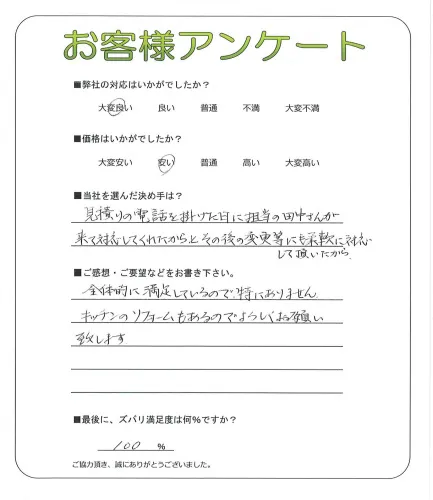 お客様アンケート
■弊社の対応はいかがでしたか?
大変良い 良い 普通 不満 大変不満
■価格はいかがでしたか?
大変安い 安い 普通 高い 大変高い
■当社を選んだ決め手は?
見積りの電話を掛けた日に担当の田中さんが
来て対応してくれたからと その後の変更等にも柔軟に対応
して頂いたから
■ご感想・ご要望などをお書き下さい。
全体的に満足しているので、特にありません
キッチンのリフォームもあるのでよろしくお願い
致します
■最後に、ズバリ満足度は何%ですか?
100 %
ご協力頂き、誠にありがとうございました。